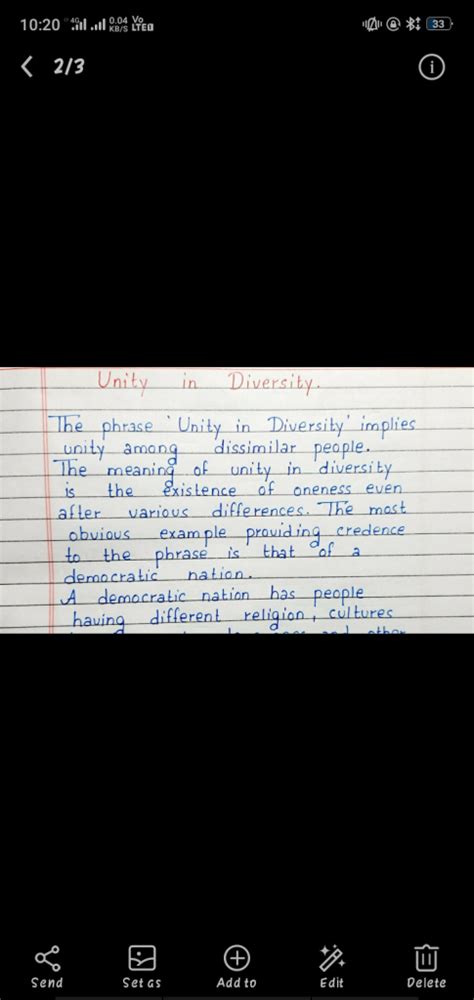 10:20 4G 0.04 KB/S Vo LTE 33
2/3
Unity in Diversity.
The phrase 'Unity in Diversity' implies
unity among dissimilar people.
The meaning of unity in diversity
is the existence of oneness even
after various differences. The most
obvious example providing credence
to the phrase is that of a
democratic nation.
A democratic nation has people
having different religion, cultures
and other
Send Set as Add to Edit Delete